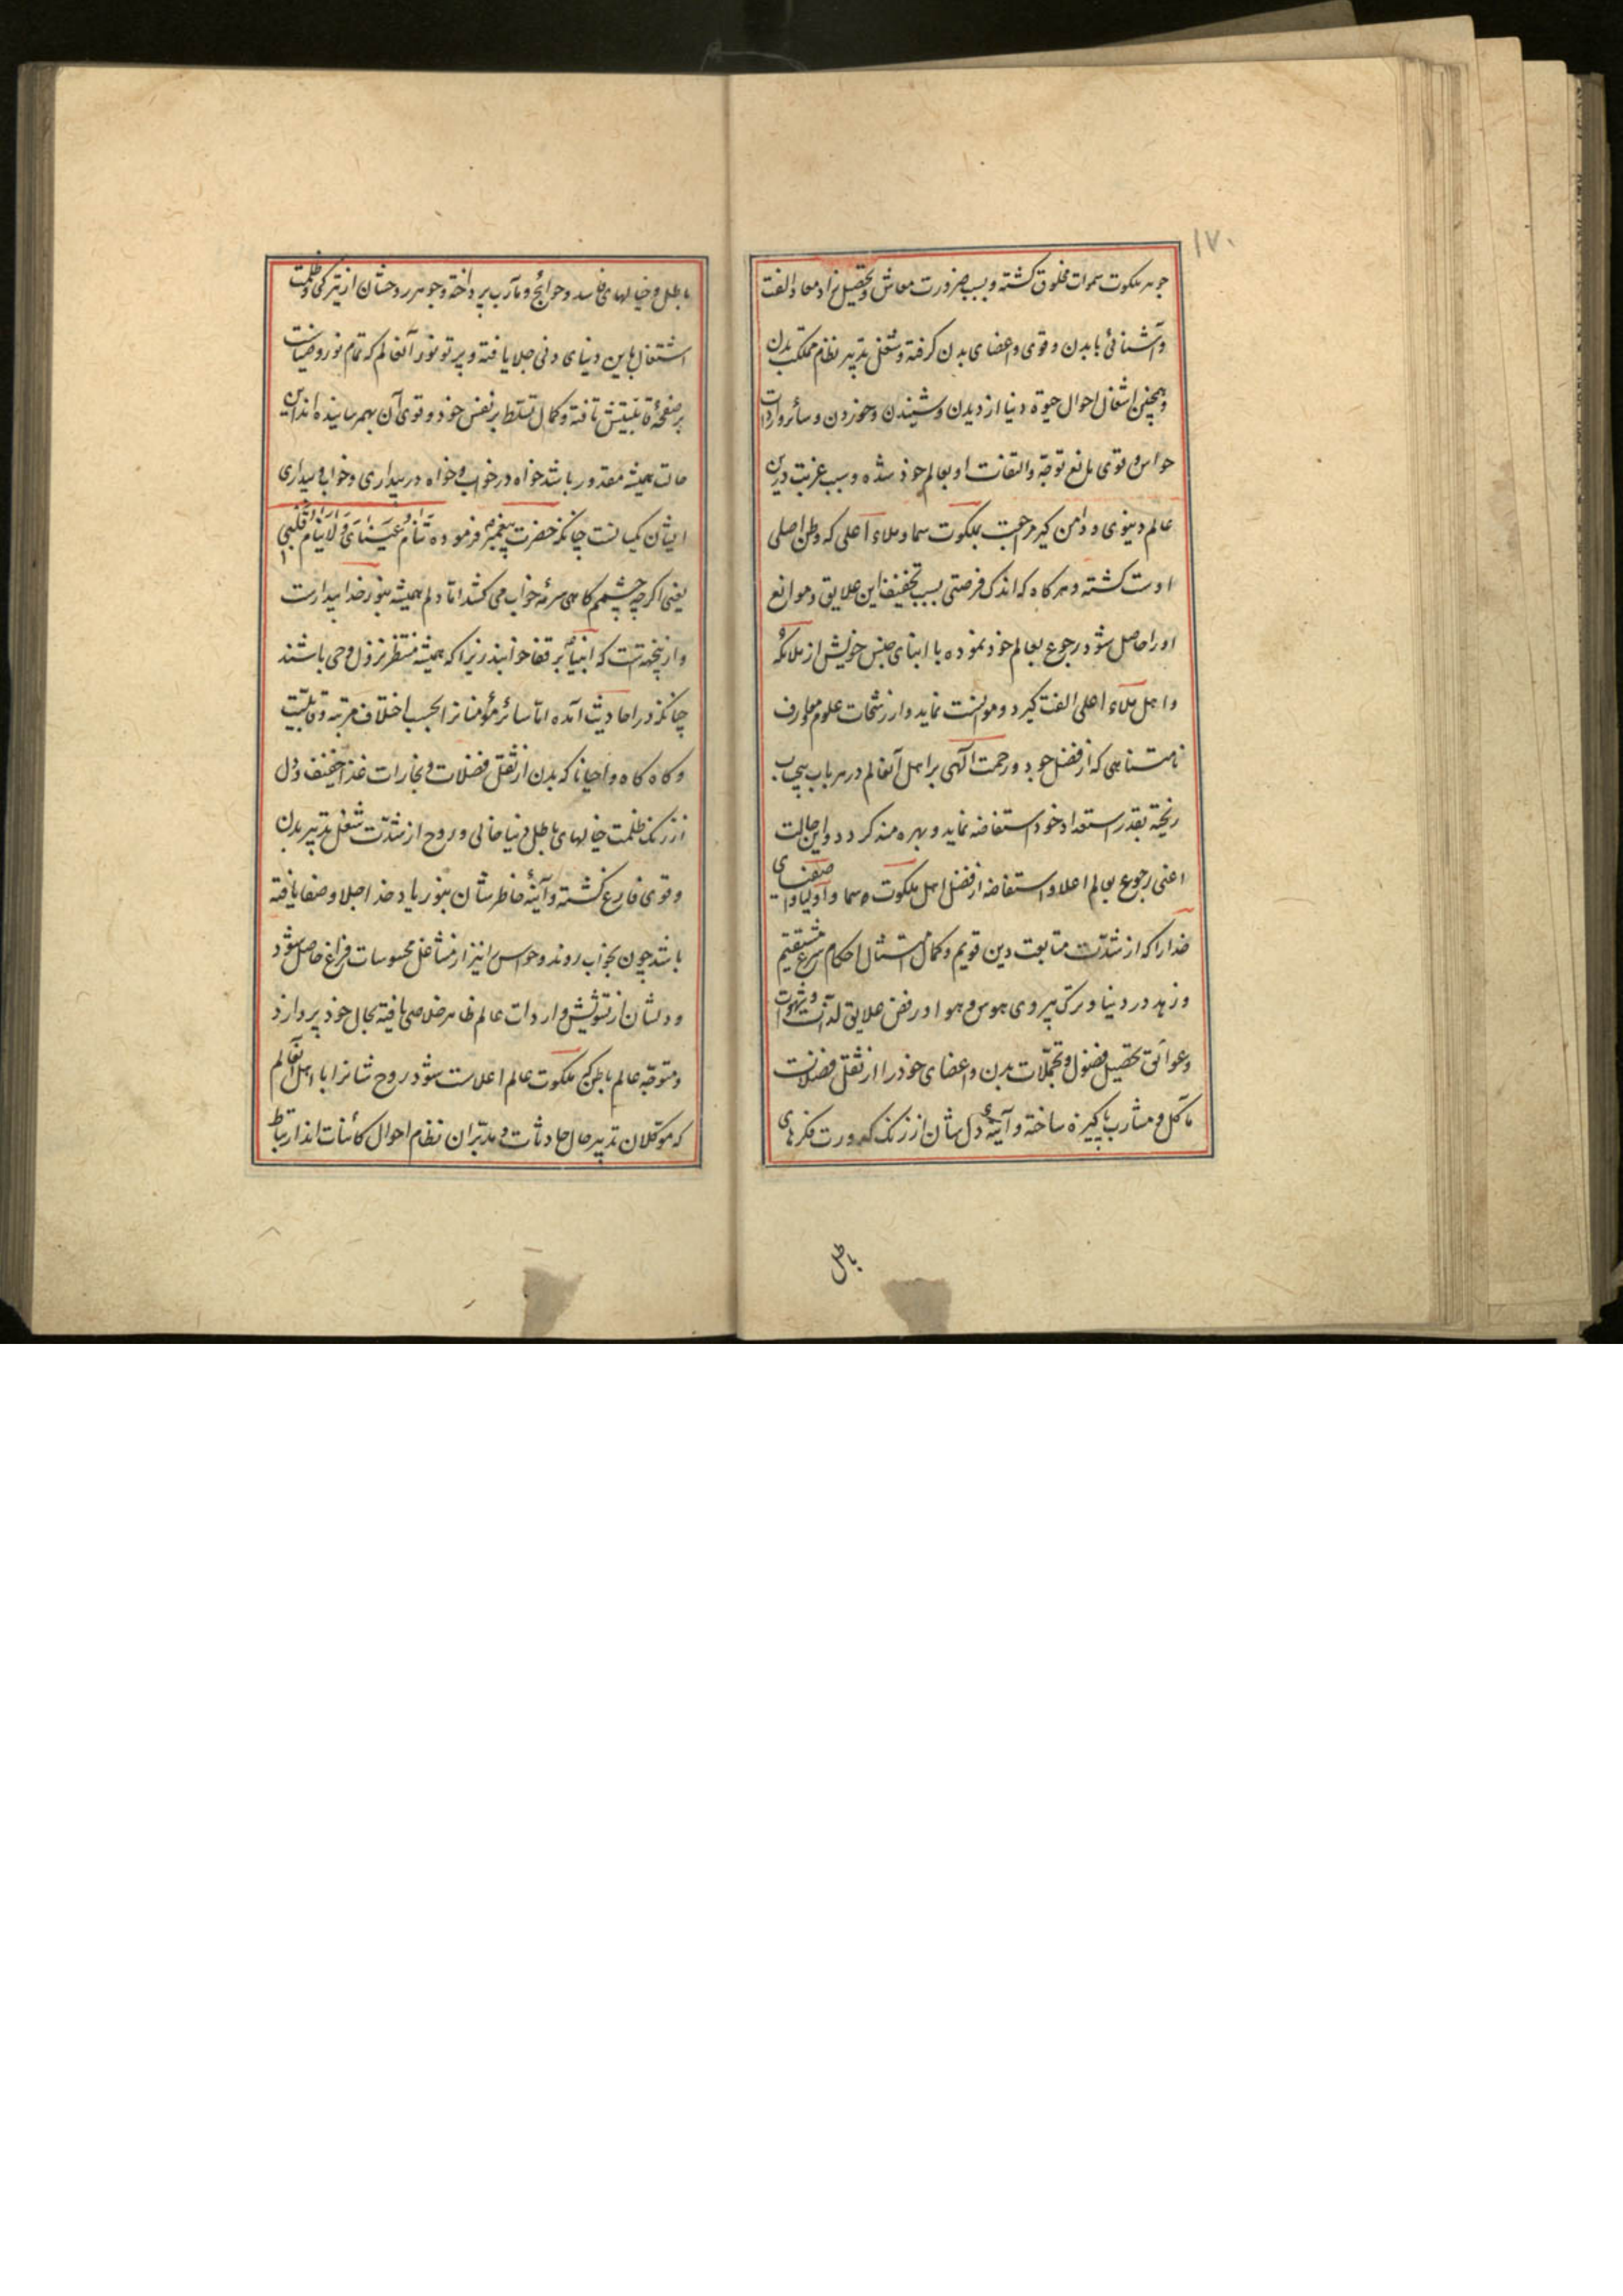 ۱۷۰
جوهر ملکوت سموات مخلوق کشته و بسبب ضرورت معاش و تحصیل زاد معاد الفت
و آشنائی با بدن و قوی و اعضای بدن کرفته و شغل تدبیر نظام مملکت بدن
و همچنین اشغال احوال حیوة دنیا از دیدن و شنیدن و خوردن و سائر واردات
حواس و قوی مانع توجّه و التفات او بعالم خود شده و سبب غربت درین
عالم دنیوی و دامن کیر مراجعت بملکوت سما و ملاء اعلی که وطن اصلی
اوست کشته و هر کاه که اندک فرصتی بسبب تخفیف این علایق و موانع
او را حاصل شود رجوع بعالم خود نموده با ابنای جنس خویش از ملائکه
و اهل ملاء اعلی الفت کیرد و موانست نماید و از رشحات علوم و معارف
نامتناهی که از فضل جود و رحمت آلهی بر اهل آنعالم در هر باب بیحساب
ریخته بقدر استعداد خود استفاضه نماید و بهره مند کردد و این حالت
اعنی رجوع بعالم اعلا و استفاضه از فضل اهل ملکوت سما و اولیا و اصفیای
خدا را که از شدّت متابعت دین قویم و کمال امتثال احکام شرع مستقیم
و زهد در دنیا و ترک پیروی هوس و هوا و رفض علایق لذّات و شهوات
و عوائق تحصیل فضول و تجمّلات بدن و اعضای خود را از ثقل فضلات
مآکل و مشارب پاکیزه ساخته و آینهٔ دل شان از زنک کدورت فکرهای
باطل
باطل و خیالهای فاسد و حوائج و مآرب پرداخته و جوهر روحشان از تیرکی و ظلمت
اشتغال باین دنیای دنی جلا یافته و پرتو نور آنعالم که تمام نور و ضیاست
بر صفحهٔ قابلیّتش تافته و کمال تسلّط بر نفس خود و قوی آن بهم رسانیده اند این
حالت همیشه مقدور باشد خواه در خواب و خواه در بیداری و خواب و بیداری
ایشان یکسانست چنانکه حضرت پیغمبر فرموده تَنَامُ عَیْنَایَ وَلَا یَنَامُ قَلْبِی
یعنی اکر چه چشمم کاهی سرمهٔ خواب می کشد امّا دلم همیشه بنور خدا بیدارست
و ازینجهتست که انبیا بر قفا خوابند زیرا که همیشه منتظر نزول وحی باشند
چنانکه در احادیث آمده امّا سائر مؤمنانرا بحسب اختلاف مرتبه و قابلیّت
و کاه کاه و احیانا که بدن از ثقل فضلات و بخارات غذا خفیف و دل
از زنک ظلمت خیالهای باطل دنیا خالی و روح از شدّت شغل بتدبیر بدن
و قوی فارغ کشته و آینهٔ خاطرشان بنور یاد خدا جلا و صفا یافته
باشد چون بخواب روند و حواس نیز از مشاغل محسوسات فراغ حاصل شود
و دلشان از تشویش واردات عالم ظاهر خلاصی یافته بحال خود پردازد
و متوجّه عالم باطن که ملکوت عالم اعلاست شود روح شانرا با اهل آنعالم
که موکّلان تدبیر حال حادثات و مدبّران نظام احوال کائنات اند ارتباط